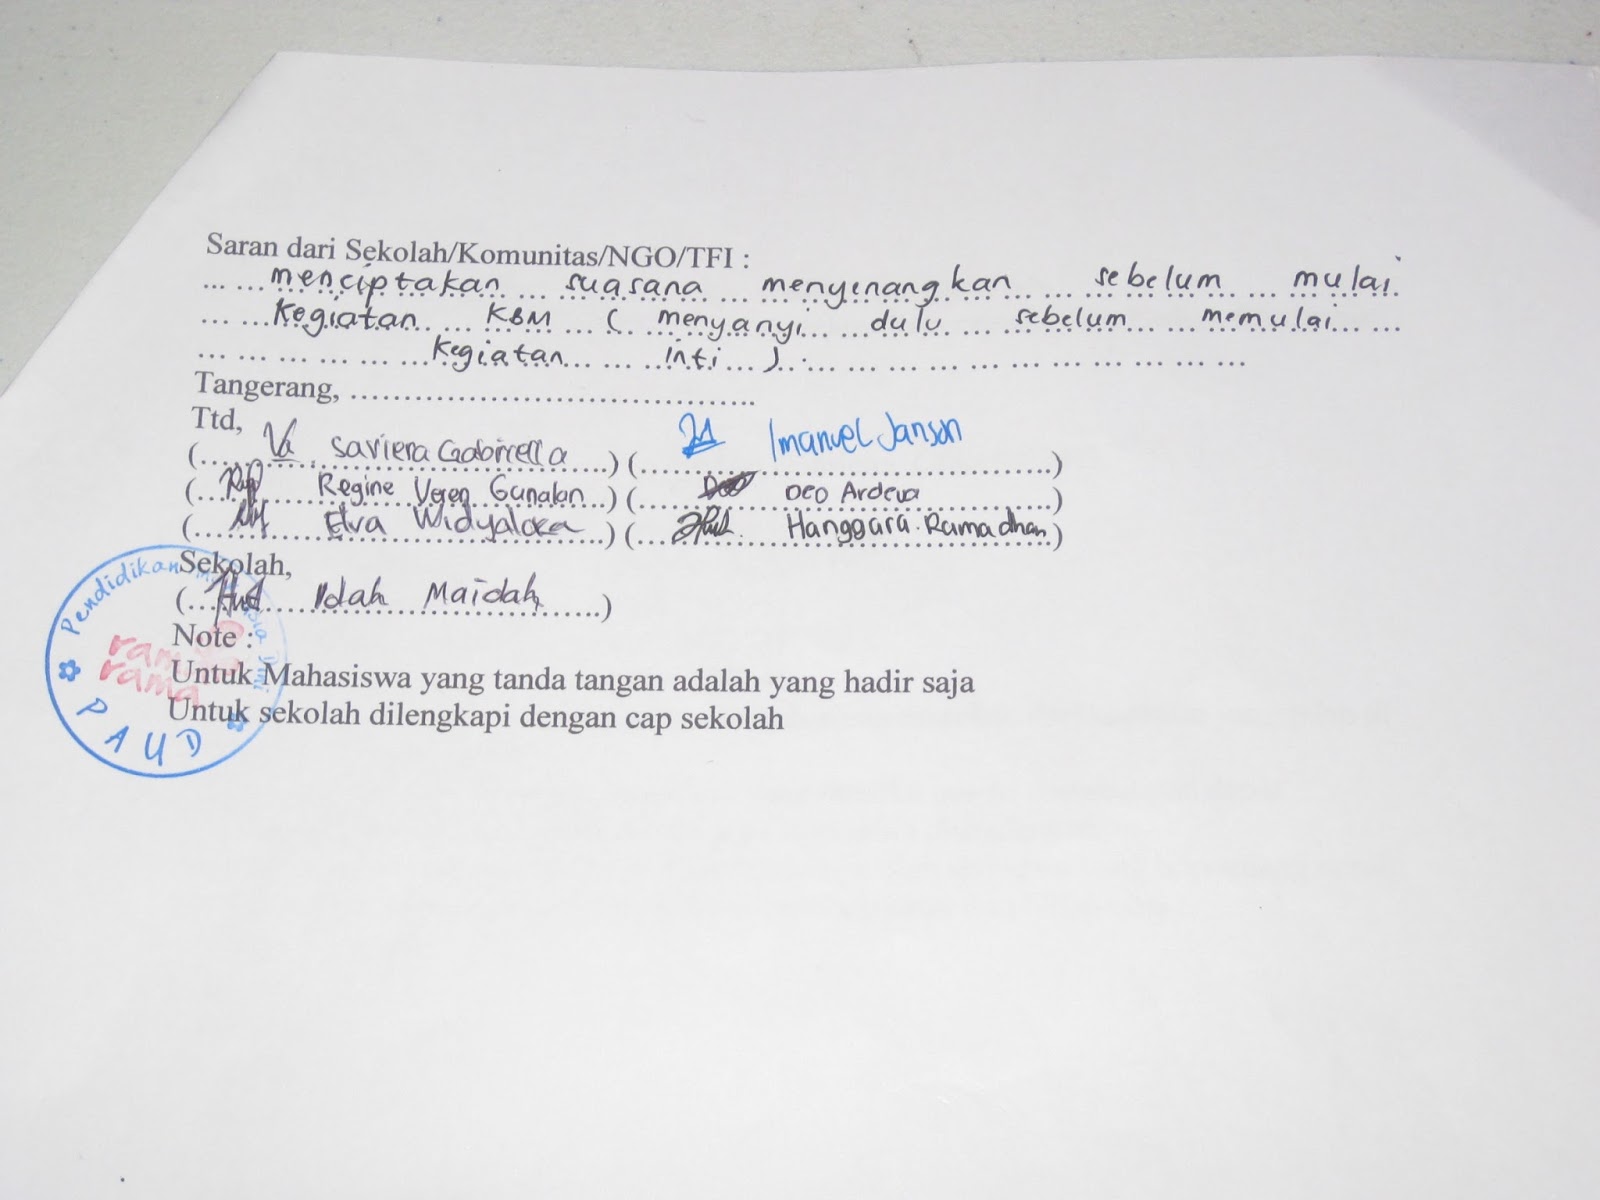 Saran dari Sekolah/Komunitas/NGO/TFI :
menciptakan suasana menyenangkan sebelum mulai
Kegiatan KBM ( menyanyi dulu sebelum memulai
Kegiatan inti ).
Tangerang, ......................................
Ttd,
(... Saviera Gabirella ...) (... Imanuel Janson ...)
(... Regine Veren Gunalan ...) (... Deo Ardeva ...)
(... Elva Widyaloka ...) (... Hanggara Ramadhan ...)
Sekolah,
(... Idah Maidah ...)
Note :
Untuk Mahasiswa yang tanda tangan adalah yang hadir saja
Untuk sekolah dilengkapi dengan cap sekolah
Pendidikan Dini
rama
rama
PAUD